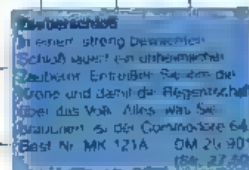 Zauberschloß
In einem streng bewachten
Schloß lagert ein unheimlicher
Zauberer. Entreißen Sie ihm die
Krone und damit die Regentschaft
über das Volk. Alles, was Sie
brauchen, ist der Commodore 64.
Best.-Nr. MK 121A DM 29,90*